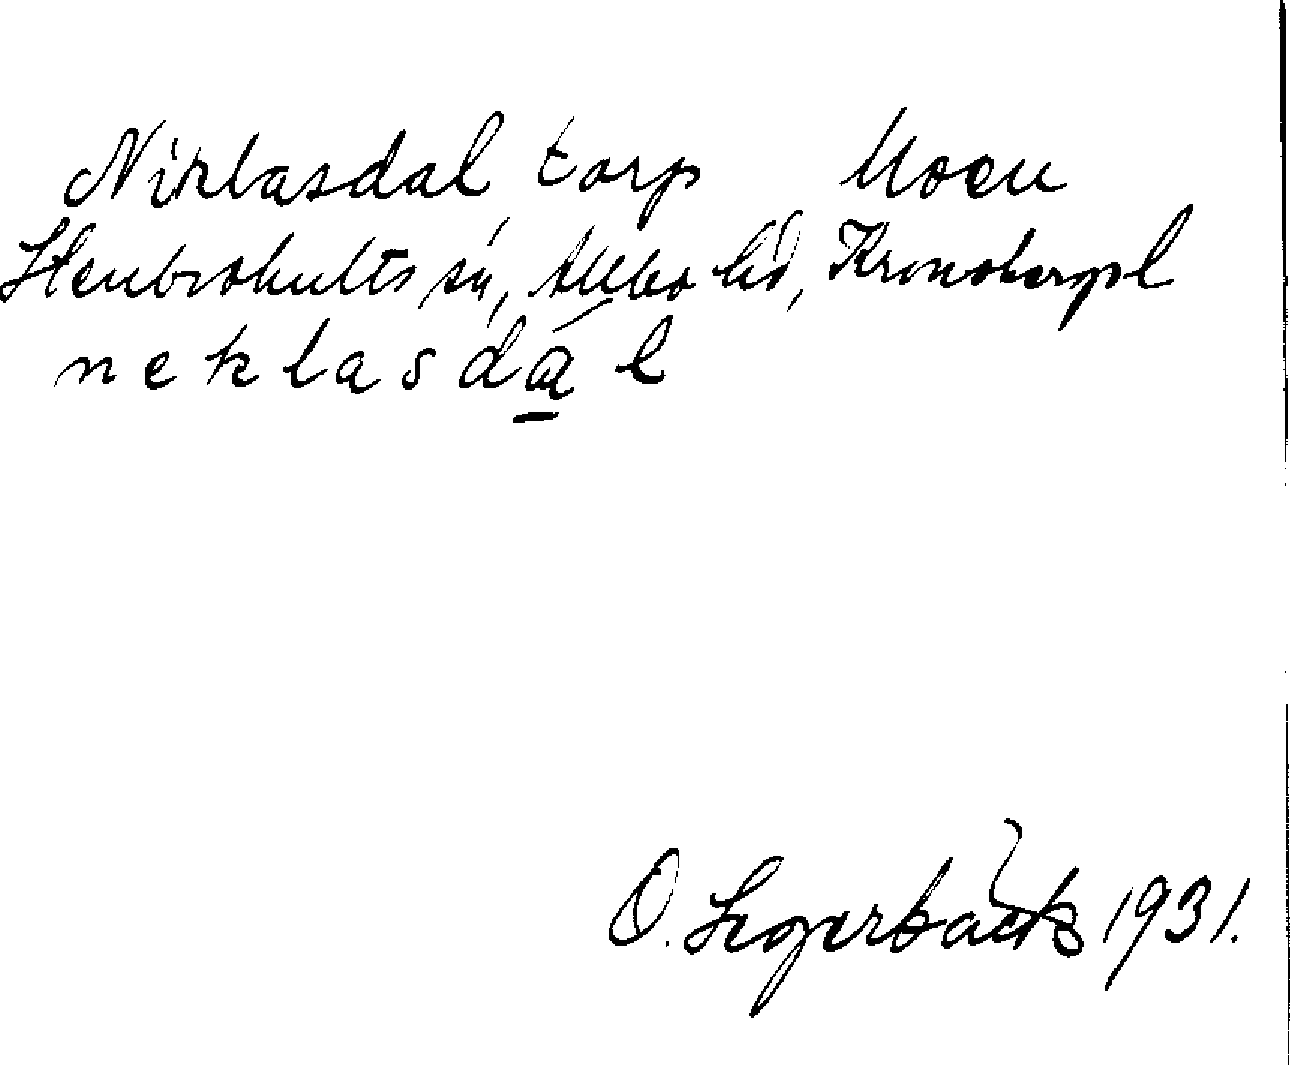 Niklasdal, torp Moen
Stenbrohults sn, Allbo hd, Kronobergs l
neklasdál
O. Segerbäck 1931.